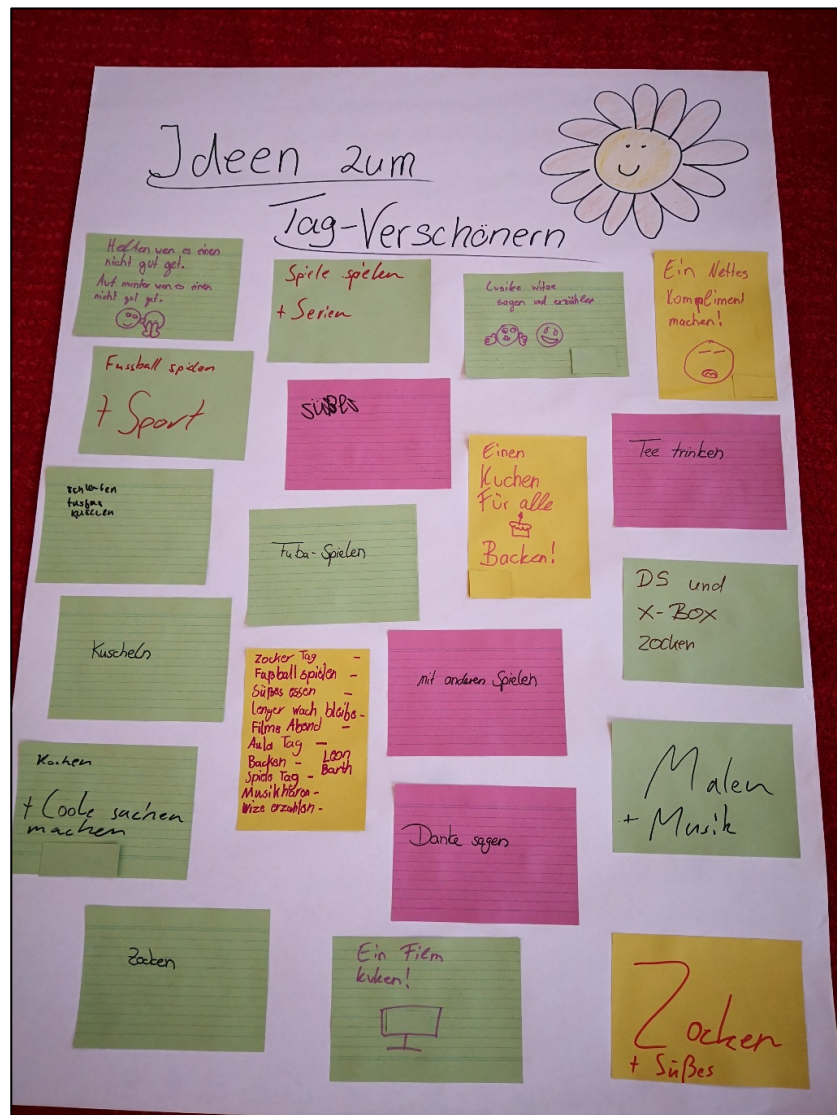 Ideen zum
Tag-Verschönern
Helfen wen es einen
nicht gut get.
Auf munter wen es einen
nicht gut get.
Spiele spielen
+ Serien
Lusike witze
sagen und erzählen
Ein Nettes
Kompliment
machen!
Fussball spielen
+ Sport
süßes
Einen
Kuchen
Für alle
Backen!
Tee trinken
schlafen
kuscheln
Fuba-Spielen
DS und
X-BOX
zocken
Kuscheln
Zocker Tag -
Fußball spielen -
Süßes essen -
longer wach bleibe -
Filme Abend -
Aula Tag -
Backen - Leon
Barth
Spiele Tag -
Musik hören -
wize erzahlen -
mit anderen Spielen
Kochen
+ Coole sachen
machen
Malen
+ Musik
Danke sagen
Zocken
Ein Film
kuken!
Zocken
+ Süßes